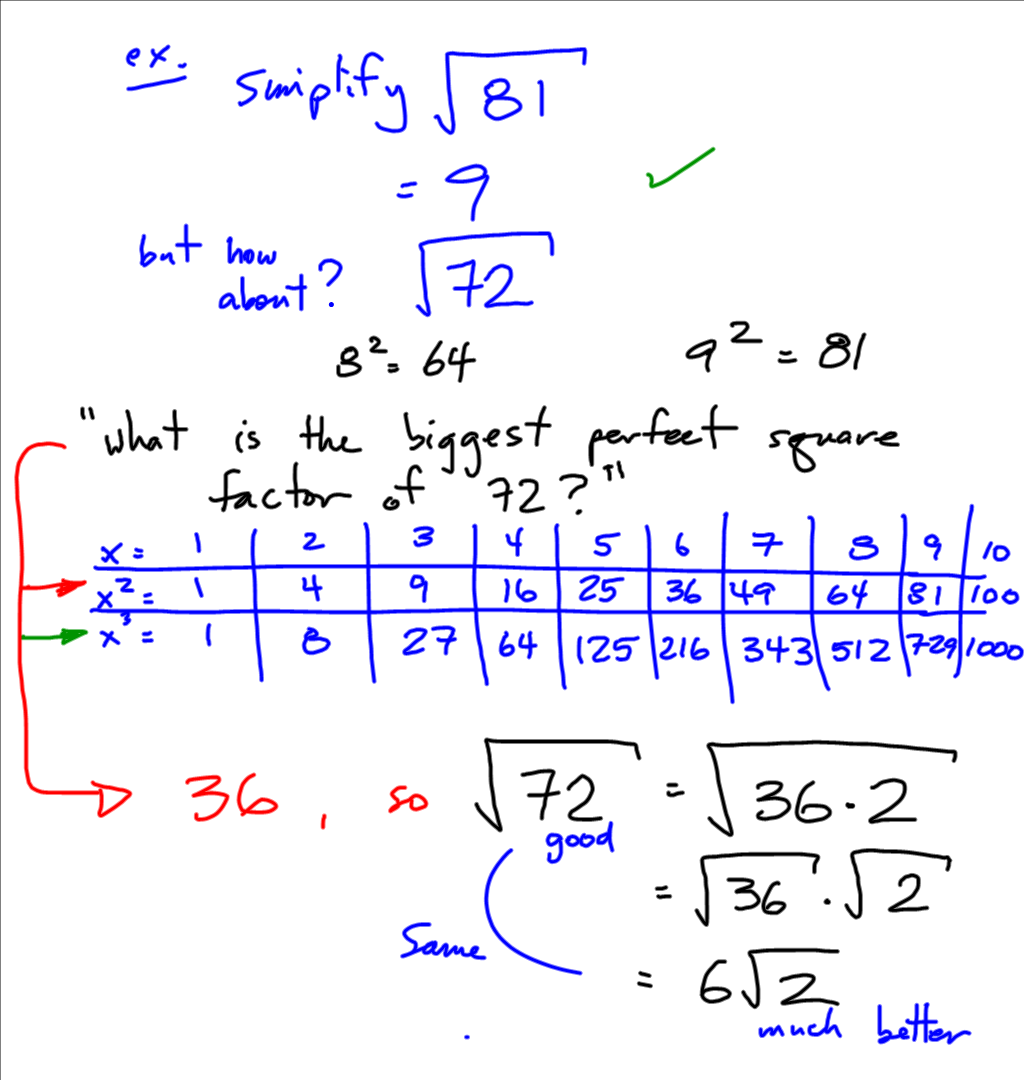 ex. Simplify √81
= 9 ✓
but how about? √72
8² = 64 9² = 81
"what is the biggest perfect square
factor of 72?"
x = 1 2 3 4 5 6 7 8 9 10
x² = 1 4 9 16 25 36 49 64 81 100
x³ = 1 8 27 64 125 216 343 512 729 1000
36, so √72 = √36·2
good
= √36 · √2
Same
= 6√2
much better